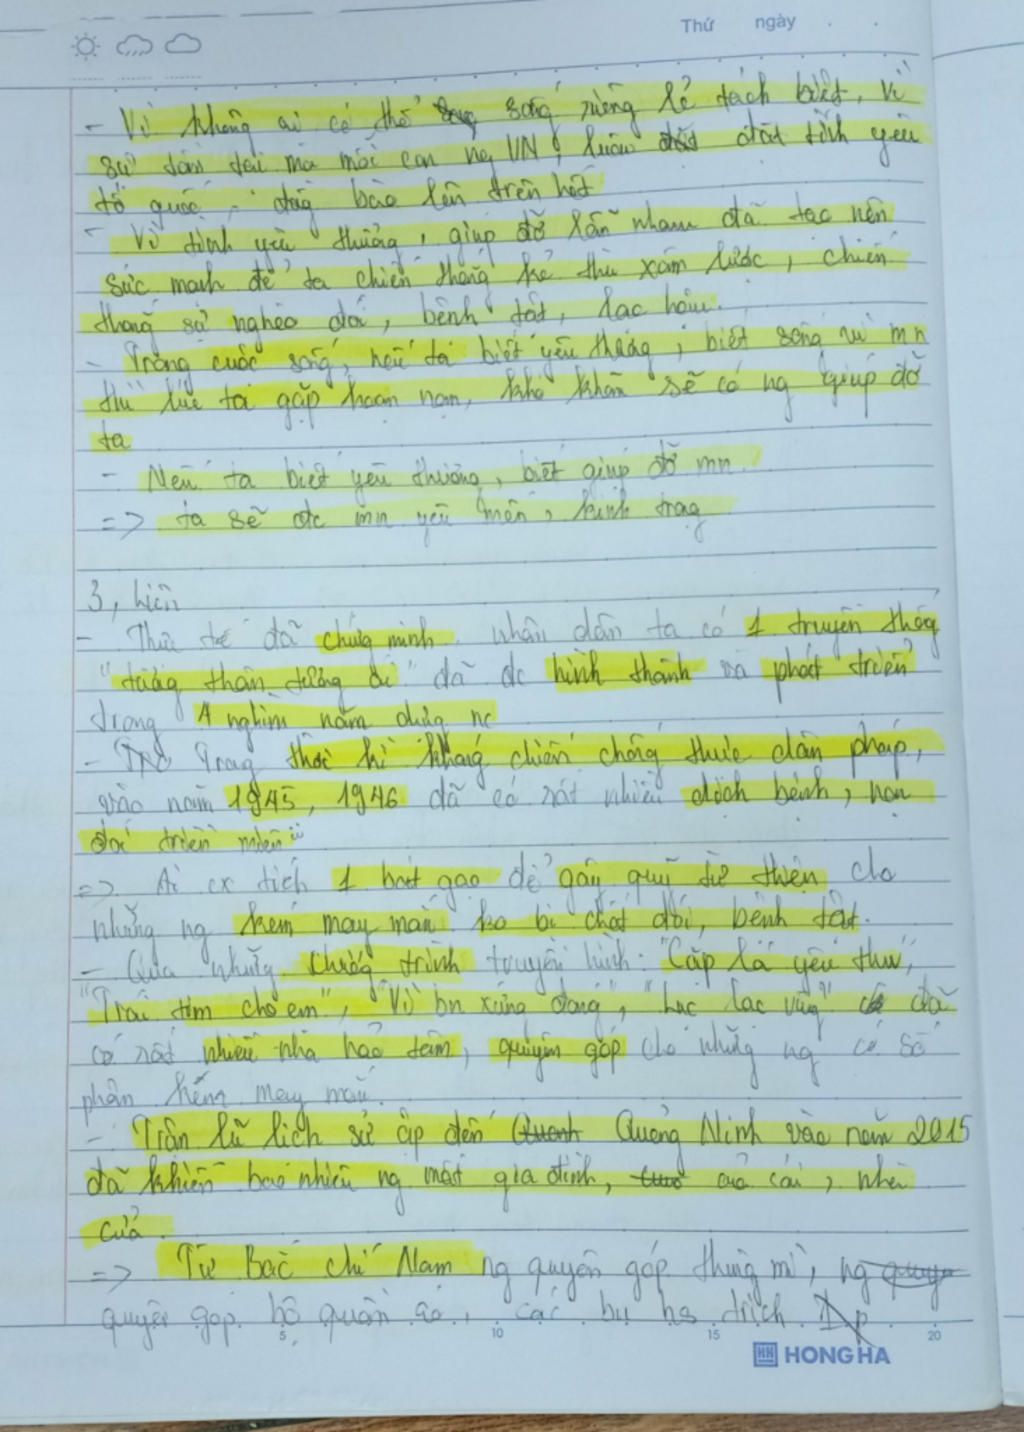 Thứ ngày . .
- Vì không ai có thể sống riêng lẻ tách biệt, vì
sự tồn tại mà mỗi con ng VN luôn đặt tình yêu
tổ quốc, đồng bào lên trên hết
- Vì tình yêu thương, giúp đỡ lẫn nhau đã tạo nên
sức mạnh để ta chiến thắng kẻ thù xâm lược, chiến
thắng sự nghèo đói, bệnh tật, lạc hậu.
- Trong cuộc sống, nếu ta biết yêu thương, biết sống vì mn
thì lúc ta gặp hoạn nạn, khó khăn sẽ có ng giúp đỡ
ta
- Nếu ta biết yêu thương, biết giúp đỡ mn
=> ta sẽ đc mn yêu mến, kính trọng
3, Liên
- Thực tế đã chứng minh nhân dân ta có 1 truyền thống
"tương thân tương ái" đã đc hình thành và phát triển
trong 4 nghìn năm dựng nc
- Trong thời kì kháng chiến chống thực dân pháp,
vào năm 1945, 1946 đã có rất nhiều dịch bệnh, nạn
đói triền miên
=> Ai cx tích 1 bát gạo để gây quỹ từ thiện cho
những ng kém may mắn ko bị chết đói, bệnh tật.
- Qua những chương trình truyền hình: "Cặp lá yêu thư",
"Trái tim cho em", "Vì bn xứng đáng", "Lục lạc vàng" đã
có rất nhiều nhà hảo tâm, quyên góp cho những ng có số
phận kém may mắn.
- Trận lũ lịch sử ập đến Quảng Ninh vào năm 2015
đã khiến bao nhiêu ng mất gia đình, của cải, nhà
cửa.
=> Từ Bắc chí Nam ng quyên góp thùng mì, ng
quyên góp bộ quần áo, các bn hs trích
5 10 15 20
HONG HA